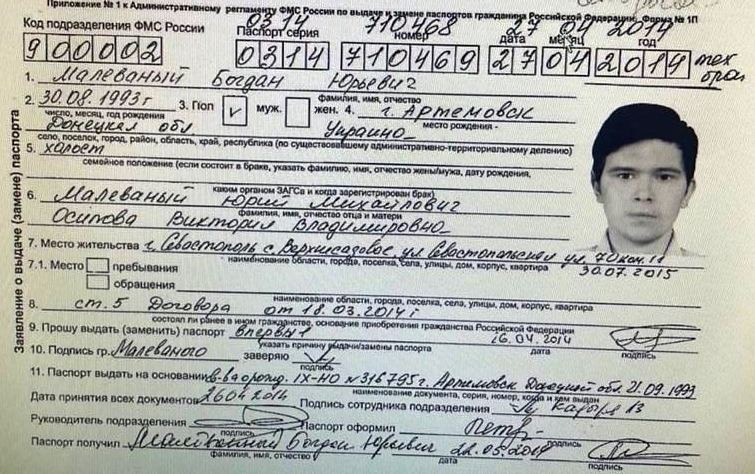 Приложение № 1 к Административному регламенту ФМС России по выдаче и замене паспортов гражданина Российской Федерации, Форма № 1П
0314 710468 27 04 2014
Код подразделения ФМС России Паспорт серия номер дата месяц год
900002 0314 710469 27 04 2019 тех
брак
1. Малеваный Богдан Юрьевич
фамилия, имя, отчество
2. 30.08.1993г 3. Пол муж. жен. 4. г. Артемовск
число, месяц, год рождения место рождения -
Донецкая обл Украина
село, поселок, город, район, область, край, республика (по существовавшему административно-территориальному делению)
5. холост
семейное положение (если состоит в браке, указать фамилию, имя, отчество жены/мужа, дату рождения,
каким органом ЗАГСа и когда зарегистрирован брак)
6. Малеваный Юрий Михайлович
фамилия, имя, отчество отца и матери
Осипова Виктория Владимировна
7. Место жительства г. Севастополь с. Верхнесадовое, ул Севастопольская
наименование области, города, поселка, села, улицы, дом, корпус, квартира
30.07.2015
7.1. Место пребывания
обращения
наименование области, города, поселка, села, улицы, дом, корпус, квартира
8. ст. 5 Договора от 18.03.2014г
состоял ли ранее в ином гражданстве, основание приобретения гражданства Российской Федерации
9. Прошу выдать (заменить) паспорт впервые 26.04.2014
указать причину выдачи/замены паспорта дата подпись
10. Подпись гр. Малеваного заверяю
подпись
11. Паспорт выдать на основании св-ва о рожд. IX-НО №316795 г. Артемовск Донецкой обл. 21.09.1993
наименование документа, серия, номер, когда и кем выдан
Дата принятия всех документов 26.04.2014 Подпись сотрудника подразделения
Руководитель подразделения Паспорт оформил
подпись подпись
Паспорт получил Малеванный Богдан Юрьевич 22.05.2014
фамилия, имя, отчество дата подпись
Заявление о выдаче (замене) паспорта